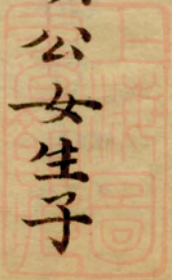 公女生子